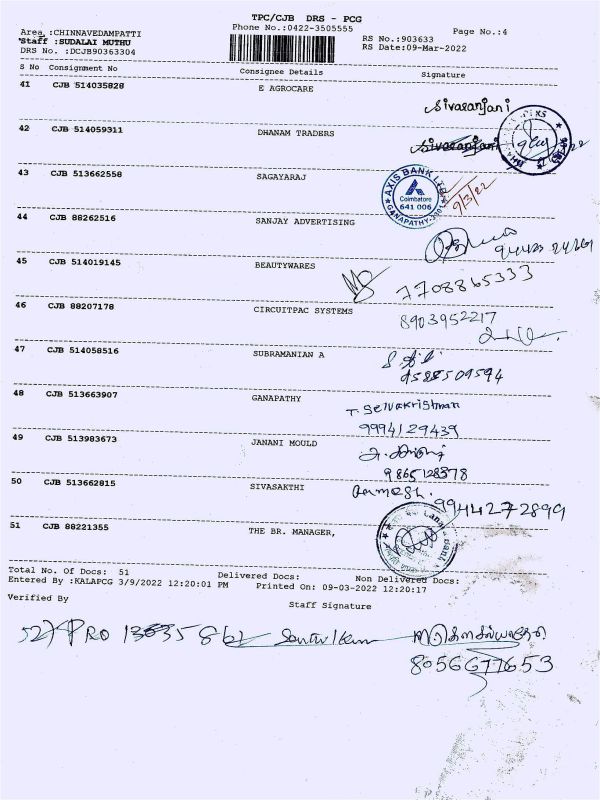 TPC/CJB DRS - PCG
Phone No.:0422-3505555
Page No.:4
Area :CHINNAVEDAMPATTI
Staff :SUDALAI MUTHU
DRS No. :DCJB90363304
RS No.:903633
RS Date:09-Mar-2022
S No Consignment No Consignee Details Signature
41 CJB 514035828 E AGROCARE
Sivaranjani
42 CJB 514059311 DHANAM TRADERS
Sivaranjani
43 CJB 513662558 SAGAYARAJ
AXIS BANK LTD
Coimbatore
641 006
GANAPATHY
9/3/22
44 CJB 88262516 SANJAY ADVERTISING
45 CJB 514019145 BEAUTYWARES
7708865333
46 CJB 88207178 CIRCUITPAC SYSTEMS
8903952217
47 CJB 514058516 SUBRAMANIAN A
9585509594
48 CJB 513663907 GANAPATHY
T. Selvakrishnan
9994129439
49 CJB 513983673 JANANI MOULD
9865128378
50 CJB 513662815 SIVASAKTHI
Ramesh.
9944272899
51 CJB 88221355 THE BR. MANAGER,
Total No. Of Docs: 51 Delivered Docs: Non Delivered Docs:
Entered By :KALAPCG 3/9/2022 12:20:01 PM Printed On: 09-03-2022 12:20:17
Verified By
Staff Signature
52) PRO
8056677653